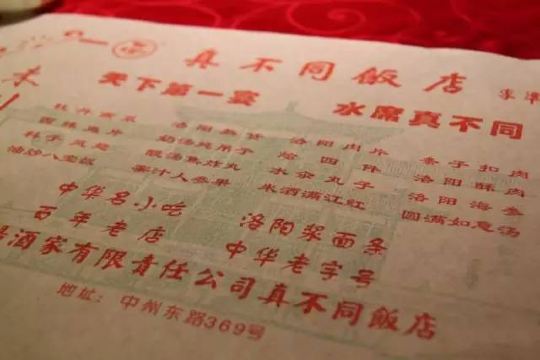 真不同飯店
李準
天下第一宴 水席真不同
牡丹燕菜 洛阳熬货 洛阳肉片 条子扣肉
料子凤翅 酸汤焦炸丸 水汆丸子 洛阳海参
油炒八宝饭 蜜汁人参果 米酒满江红 圆满如意汤
中华名小吃 洛阳浆面条
百年老店 中华老字号
酒家有限责任公司真不同飯店
地址：中州东路369号